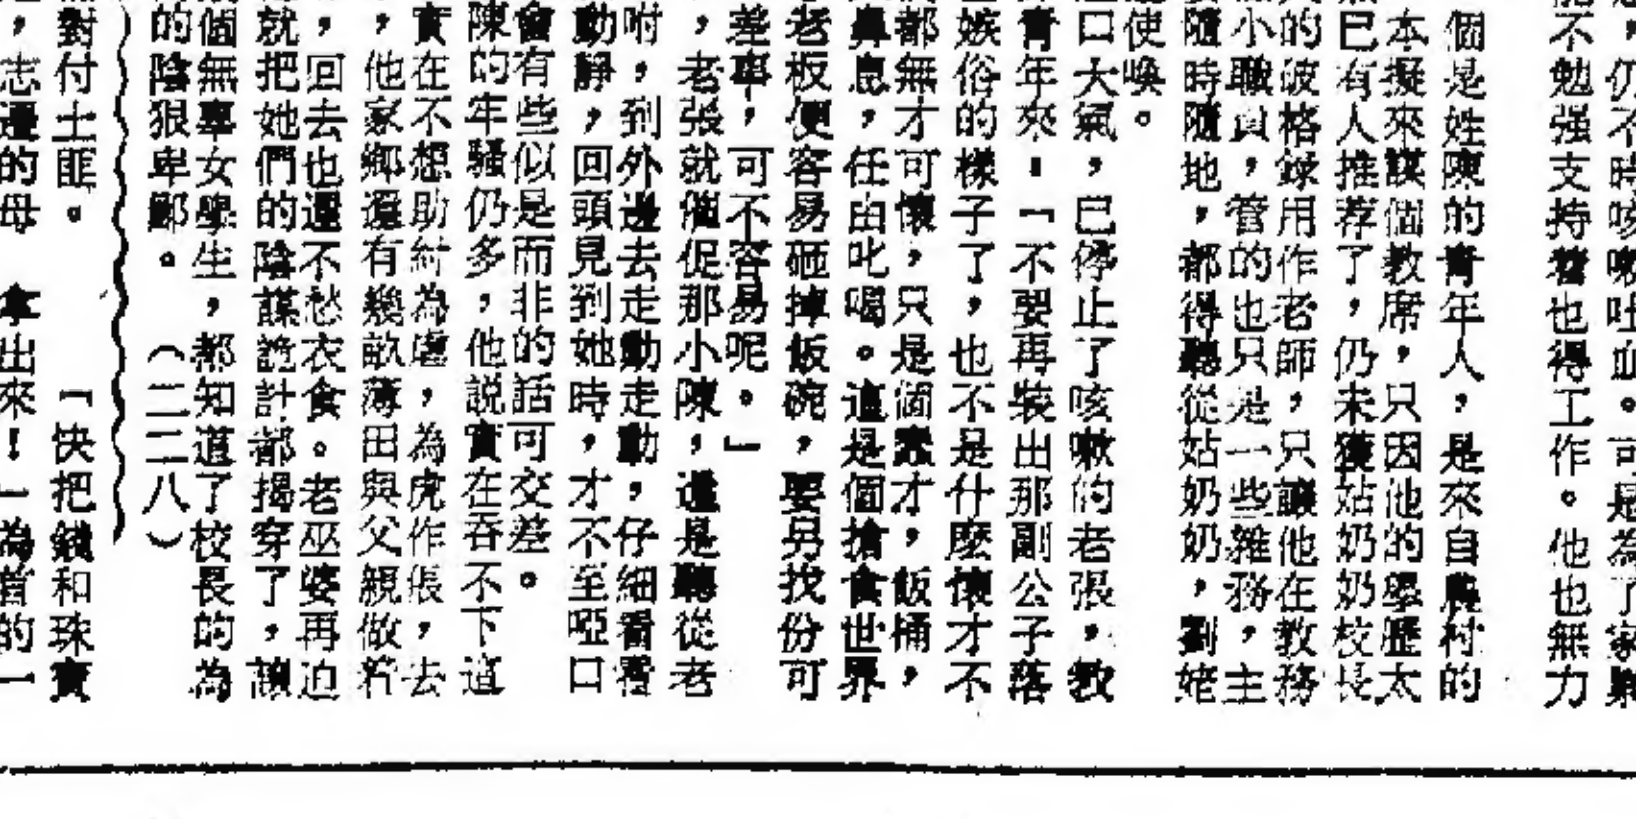 ，仍不時咳嗽吐血。可是為了家
能不勉强支持着也得工作。他也無力
個是姓陳的青年人，是來自農村的
本擬來謀個教席，只因他的學歷太
已有人推荐了，仍未獲姑奶奶校長
的破格錄用作老師，只讓他在教務
小職員，管的也只是一些雜務，主
隨時隨地，都得聽從姑奶奶，劉姥
使喚。
口大氣，已停止了咳嗽的老張，教
青年來：「不要再裝出那副公子落
嫉俗的樣子了，也不是什麼懷才不
都無才可懷，只是個蠢才，飯桶，
鼻息，任由叱喝。這是個搶食世界
老板便容易砸掉飯碗，要另找份可
差事，可不容易呢。」
，老張就催促那小陳，還是聽從老
咐，到外邊去走動走動，仔細看看
動靜，回頭見到她時，才不至啞口
會有些似是而非的話可交差。
陳的牢騷仍多，他說實在吞不下這
實在不想助紂為虐，為虎作倀，去
，他家鄉還有幾畝薄田與父親做幹
，回去也還不愁衣食。老巫婆再迫
就把她們的陰謀詭計都揭穿了，讓
個無辜女學生，都知道了校長的為
的陰狠卑鄙。（二二八）
對付土匪。「快把錢和珠寶
，志邊的母 拿出來！」為首的一